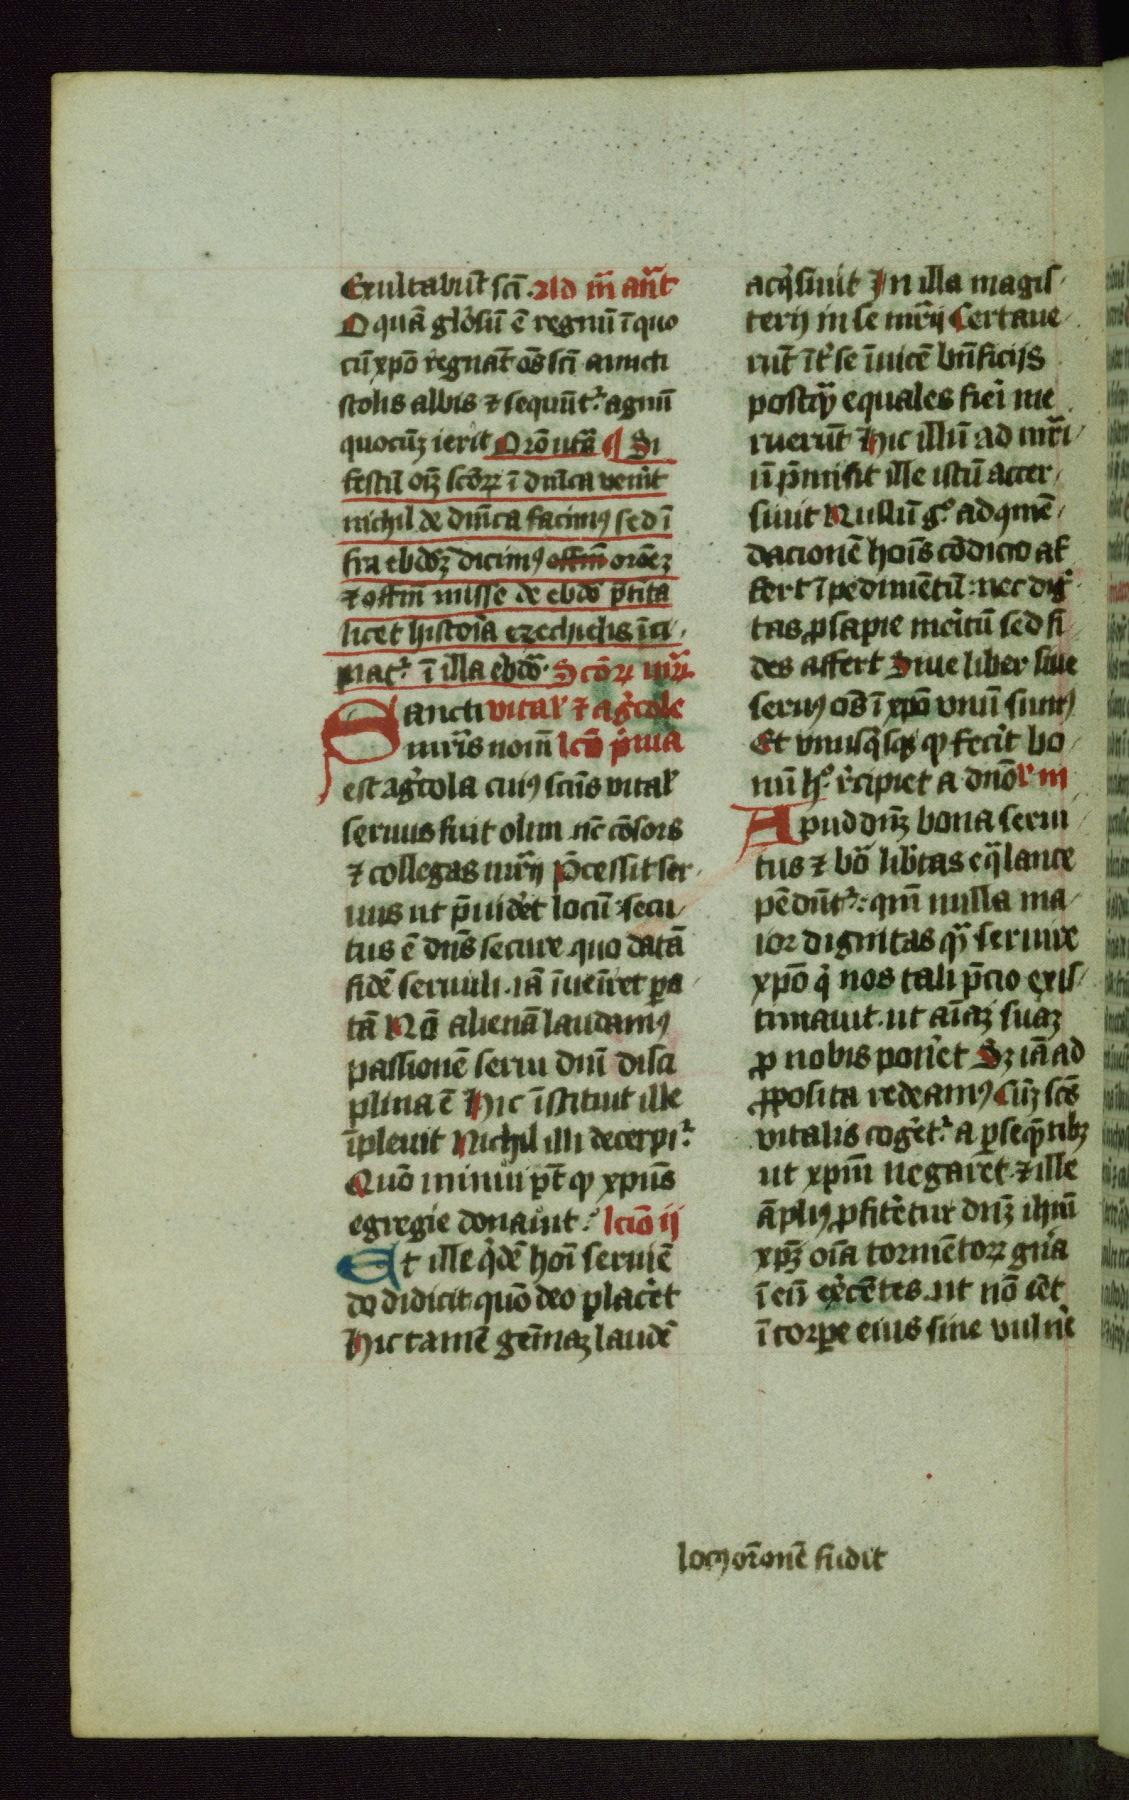 Exultabūt sci̅. Ad m̅ an̅t
O quā glo̅sū ē regnū ī quo
cū xpo̅ regnāt oēs sci̅ amicti
stolis albis ⁊ sequūt᷑ agnū
quocūꝫ ierit Oro̅ ut sa̅ ¶ Si
festū oīꝫ sco̅ꝝ ī dn̅ica venit
nichil de dn̅ica facimꝯ sed ī
fra ebdo̅ꝫ dicimꝯ offm̅ oro̅eꝫ
⁊ offm̅ misse de ebdo̅ ꝑtita
licet histoi̅a ezechielis īci
piat᷑ ī illa ebdo̅. Sco̅ꝝ mr̅ꝝ
Sancti vital̛ ⁊ ag̛cole
mr̅is nom̅ lco̅ p̛ma
est ag̛cola cuiꝯ sc̅us vital̛
seruus fuit olim nc̅ co̅sors
⁊ collegas mr̅ij p̅cessit ser
uus ut p̅uidet locū: secu
tus ē dn̅s secure quo datā
fidē seruuli. iā īueīret pa
tā No̅ alienā laudamꝯ
passionē serui dn̅i disci
plina ē Hic īstituit ille
īpleuit Nichil illi decerpi᷑
Quo̅ minui pt̅ qꝫ xpūs
egregie donauit: lcio̅ ij
Et ille q̛dē hoi̅ seruiē
do didicit quo̅ deo placet
Hic tamē gem̅aꝫ laudē
acq̛siuit In illa magis
terij in se mr̅ij Certaue
rūt īt̛ se īuicē bn̅ficijs
postqꝫ equales fiei̅ me
ruerūt Hic illū ad mr̅i
ū p̅misit ille istū accer
siuit Nullū g̊ ad q̅mē
dacionē hoīs co̅dicio af
fert īpedimētū: nec dig̅
tas ꝓsapie mei̅tū sed fi
des affert Siue liber siue
seruꝯ oēs ī xpo̅ vnū sumꝯ
Et vnusq̛sqꝫ qꝫ fecit bo
nū h̊ r̅cipiet a dn̅o l̛ iij
Apud dn̅ꝫ bona serui
tus ⁊ bo̅ lib̅tas eq̅ lance
pēdūt᷑: qm̅ nulla ma
ior dignitas qꝫ seruire
xpo̅ q̛ nos tali p̅cio exis
timauit. ut ai̅aꝫ suaꝫ
ꝓ nobis poneet Sꝫ iā ad
ꝓposita redeamꝯ Cūꝫ sc̅s
vitalis coget᷑ a ꝑseq̅tibꝫ
ut xpm̅ negaret. ⁊ ille
āpliꝯ ꝓfitetur dn̅ꝫ ihm̅
xpꝫ oi̅a tormētoꝝ gn̅a
ī eū ex̛cētes. ut no̅ eēt
ī corꝑe eius sine vulne̅
locꝯ or̅onē fudit